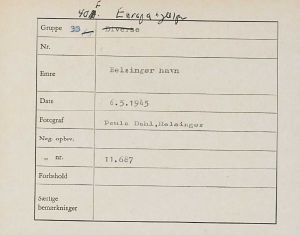 Gruppe 30 Diverse
Nr.
Emne Helsingør havn
Date 6.5.1945
Fotograf Poula Dahl, Helsingør
Neg. opbev.
„ nr. 11.687
Forbehold
Særlige
bemærkninger